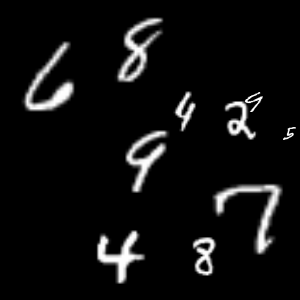 6 8
4 2 9 5
9
7
4 8